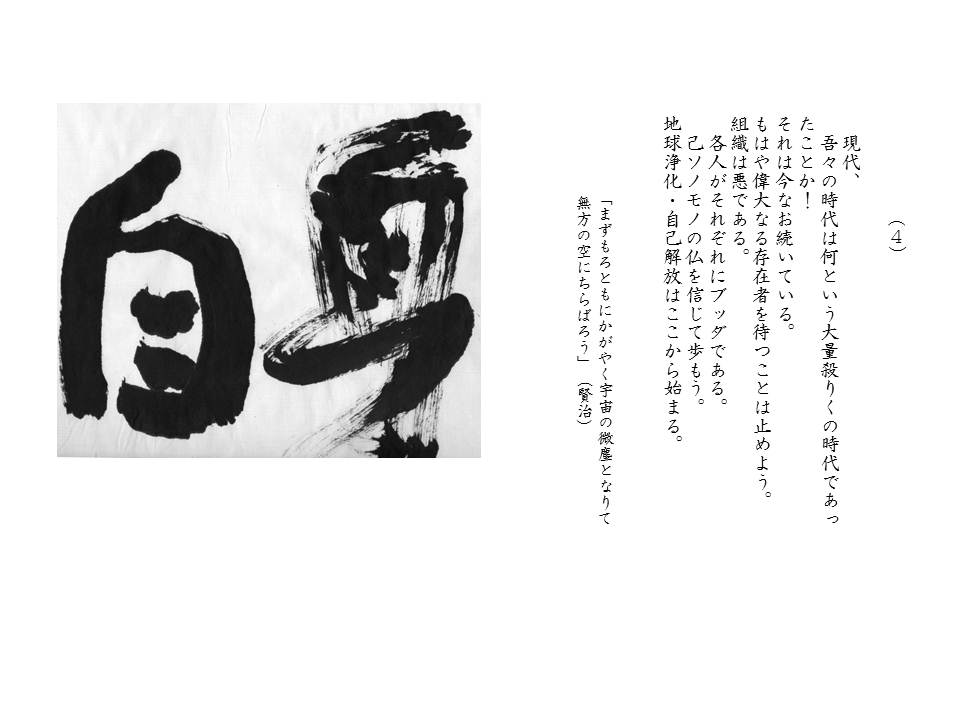 （4）
現代、
吾々の時代は何という大量殺りくの時代であっ
たことか！
それは今なお続いている。
もはや偉大なる存在者を待つことは止めよう。
組織は悪である。
各人がそれぞれにブッダである。
己ソノモノの仏を信じて歩もう。
地球浄化・自己解放はここから始まる。
「まずもろともにかがやく宇宙の微塵となりて
無方の空にちらばろう」（賢治）
自